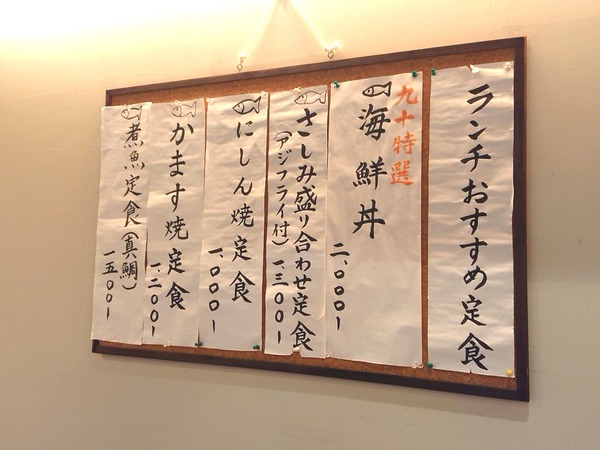 ランチおすすめ定食
九十特選
海鮮丼
二、〇〇〇ー
さしみ盛り合わせ定食
(アジフライ付)
一、三〇〇ー
にしん焼定食
一、〇〇〇ー
かます焼定食
一、二〇〇ー
煮魚定食(真鯛)
一五〇〇ー